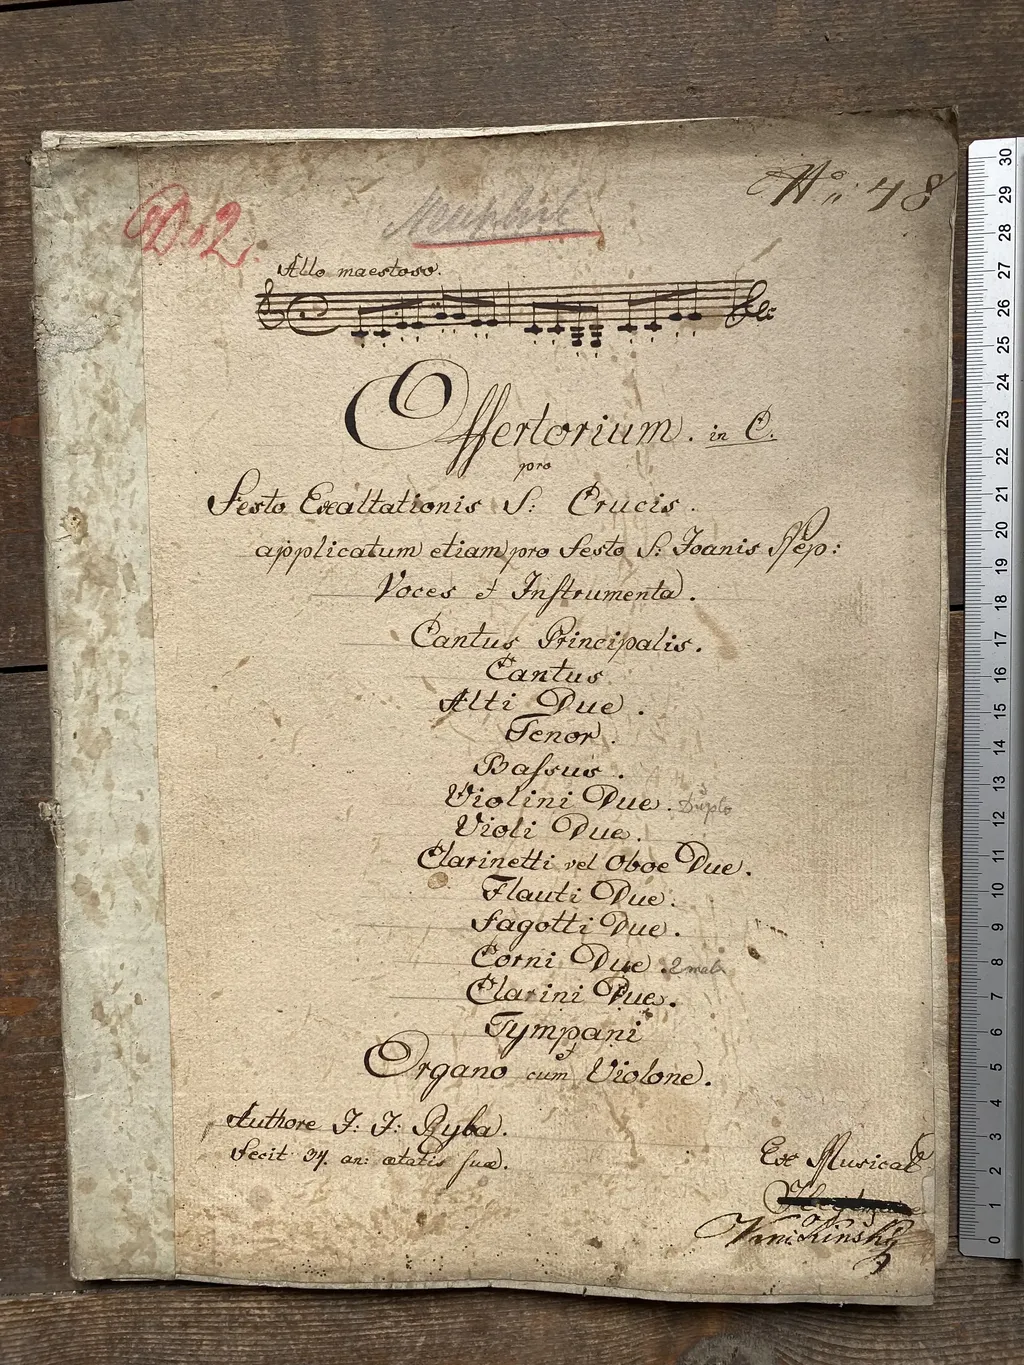 No: 48
D. 2.
Allo maestoso.
Offertorium. in C.
pro
Festo Exaltationis S: Crucis.
applicatum etiam pro Festo S: Joanis Nep:
Voces et Instrumenta.
Cantus Principalis.
Cantus
Alti Due.
Tenor.
Bassus.
Violini Due. Duplo
Violi Due.
Clarinetti vel Oboe Due.
Flauti Due.
Fagotti Due.
Corni Due.
Clarini Due.
Tympani
et
Organo cum Violone.
Authore J: J: Ryba.
Fecit 34. an: ætatis suæ.
Ex Musical
30
29
28
27
26
25
24
23
22
21
20
19
18
17
16
15
14
13
12
11
10
9
8
7
6
5
4
3
2
1
0